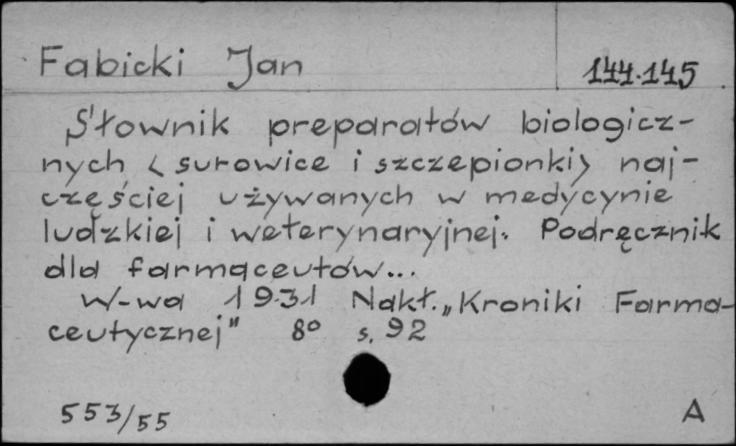 Fabicki Jan 144.145
Słownik preparatów biologicz-
nych <surowice i szczepionki> naj-
częściej używanych w medycynie
ludzkiej i weterynaryjnej. Podręcznik
dla farmaceutów...
W-wa 1931 Nakł. „Kroniki Farma-
ceutycznej" 8° s. 92
553/55 A